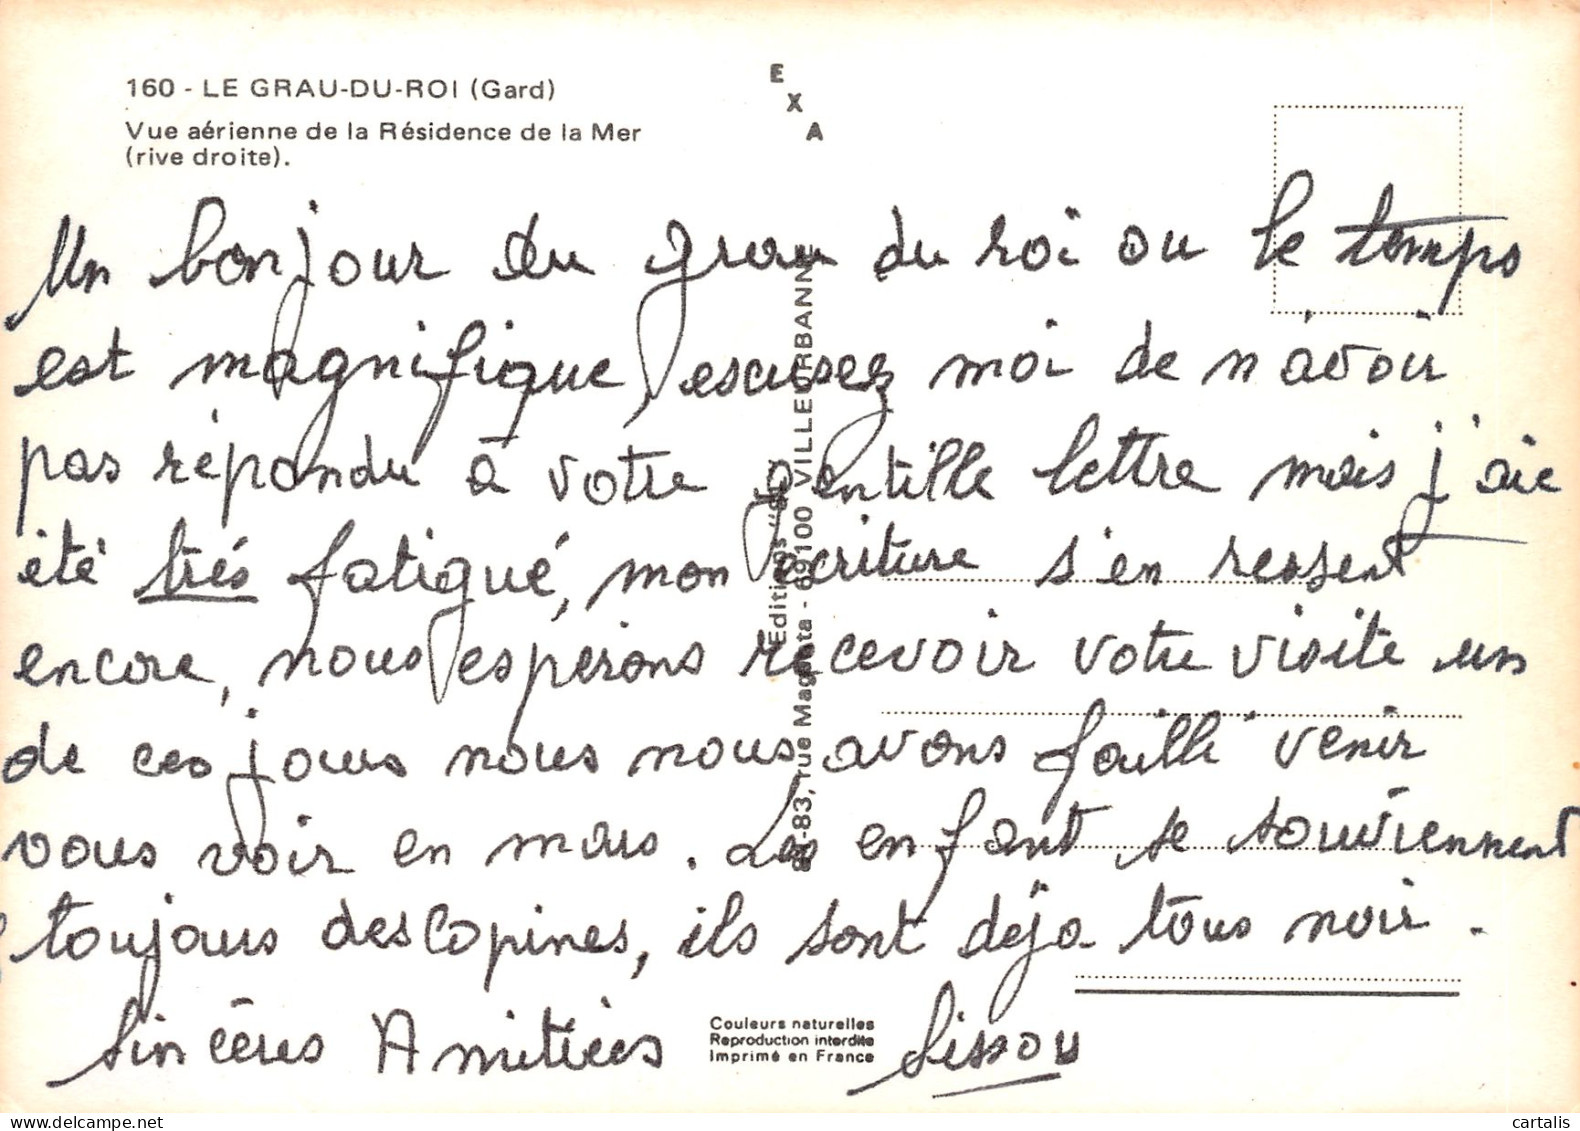 160 - LE GRAU-DU-ROI (Gard)
Vue aérienne de la Résidence de la Mer
(rive droite).
E
X
A
Un bonjour du grau du roi ou le temps
est magnifique, escusez moi de n'avoir
pas répondu à votre gentille lettre mais j'aie
été très fatigué, mon écriture s'en ressent
encore, nous esperons recevoir votre visite un
de ces jours nous nous avons failli venir
vous voir en mars. Les enfant se souviennent
toujours des copines, ils sont déja tous noir.
Sincères Amitiées Sissou
Editions "
83, rue Magenta - 69100 VILLEURBANNE
Couleurs naturelles
Reproduction interdite
Imprimé en France
cartalis